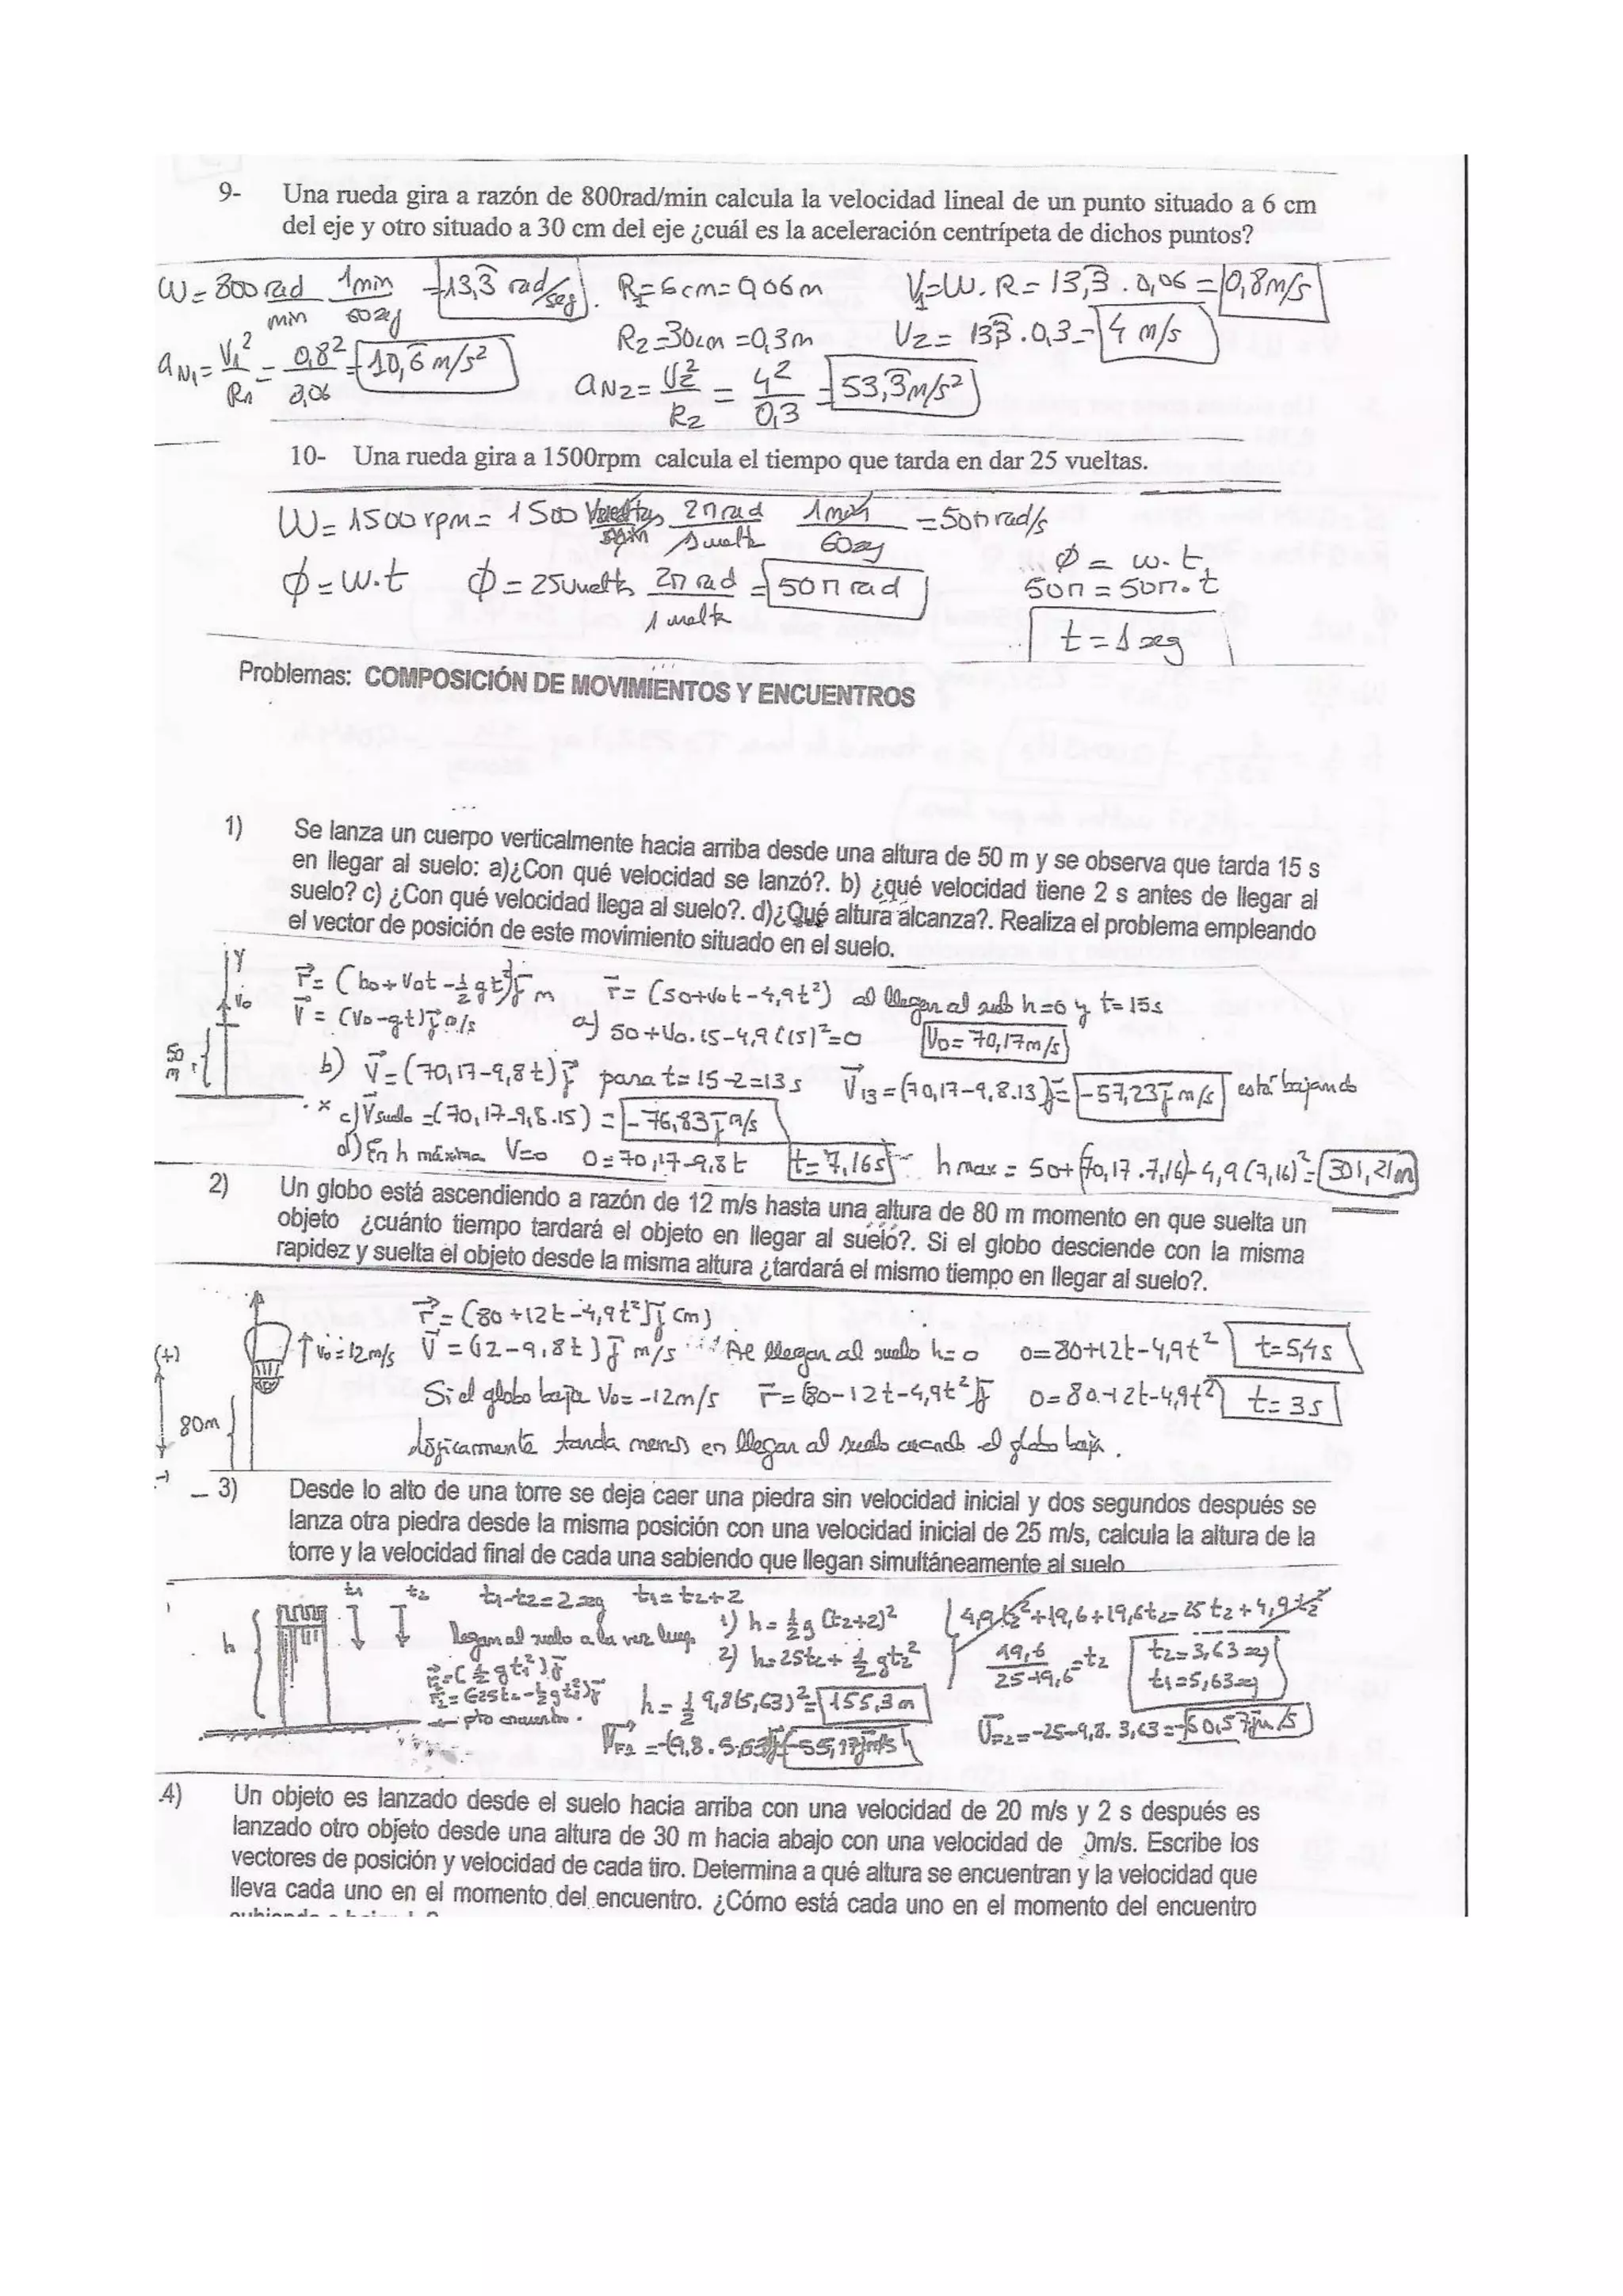 9- Una rueda gira a razón de 800rad/min calcula la velocidad lineal de un punto situado a 6 cm
del eje y otro situado a 30 cm del eje ¿cuál es la aceleración centrípeta de dichos puntos?
ω = 800 rad/min · 1min/60seg = 13,3̂ rad/seg. R₁ = 6cm = 0,06 m V₁ = ω. R = 13,3̂ . 0,06 = 0,8 m/s
R₂ = 30cm = 0,3m V₂ = 13,3̂ . 0,3 = 4 m/s
aN₁ = V₁²/R₁ = 0,8²/0,06 = 10,6̂ m/s² aN2 = V₂²/R₂ = 4²/0,3 = 53,3̂ m/s²
10- Una rueda gira a 1500rpm calcula el tiempo que tarda en dar 25 vueltas.
ω = 1500 rpm = 1500 vueltas/min 2π rad/1 vuelta 1 min/60seg = 50π rad/s
ϕ = ω·t ϕ = 25 vueltas 2π rad/1 vuelta = 50 π rad
ϕ = ω. t
50π = 50π. t
t = 1 seg
Problemas: COMPOSICIÓN DE MOVIMIENTOS Y ENCUENTROS
1) Se lanza un cuerpo verticalmente hacia arriba desde una altura de 50 m y se observa que tarda 15 s
en llegar al suelo: a)¿Con qué velocidad se lanzó?. b) ¿qué velocidad tiene 2 s antes de llegar al
suelo? c) ¿Con qué velocidad llega al suelo?. d)¿Qué altura alcanza?. Realiza el problema empleando
el vector de posición de este movimiento situado en el suelo.
Y
V₀
50 m
x
r⃗ = (h₀ + V₀t - ½ g t²) j⃗ m r⃗ = (50+V₀t - 4,9t²) al llegar al suelo h=0 y t=15s
V⃗ = (V₀-gt) j⃗ m/s a) 50 + V₀.15 - 4,9 (15)² = 0 V₀ = 70,17 m/s
b) V⃗ = (70,17-9,8t) j⃗ para t = 15-2 = 13 s V⃗₁₃ = (70,17-9,8.13) j⃗ = -57,23 j⃗ m/s está bajando
c) V⃗suelo = (70,17-9,8.15) = -76,83 j⃗ m/s
d) En h máxima V=0 0 = 70,17-9,8 t t = 7,16 s h max = 50+ (70,17 .7,16) - 4,9 (7,16)² = 301,21m
2) Un globo está ascendiendo a razón de 12 m/s hasta una altura de 80 m momento en que suelta un
objeto ¿cuánto tiempo tardará el objeto en llegar al suelo?. Si el globo desciende con la misma
rapidez y suelta el objeto desde la misma altura ¿tardará el mismo tiempo en llegar al suelo?.
(+)
80m
V₀ = 12m/s
r⃗ = (80 +12t -4,9t²) j⃗ (m)
V⃗ = (12-9,8t) j⃗ m/s Al llegar al suelo h = 0 0=80+12t-4,9t² t=5,4 s
Si el globo baja V₀ = -12m/s r⃗ = (80-12t-4,9t²) j⃗ 0=80-12t-4,9t² t= 3 s
lógicamente tarda menos en llegar al suelo cuando el globo baja .
3) Desde lo alto de una torre se deja caer una piedra sin velocidad inicial y dos segundos después se
lanza otra piedra desde la misma posición con una velocidad inicial de 25 m/s, calcula la altura de la
torre y la velocidad final de cada una sabiendo que llegan simultáneamente al suelo
h
t₁ t₂ t₁-t₂ = 2 seg t₁ = t₂+2
llegan al suelo a la vez luego 1) h = ½ g (t₂+2)²
2) h = 25t₂ + ½ gt₂²
4,9t₂²+19,6+19,6t₂ = 25 t₂ + 4,9t₂²
19,6/25-19,6 = t₂ t₂ = 3,63 seg
t₁ = 5,63 seg
pto encuentro .
h = ½ 9,8(5,63)² = 155,3 m
V⃗F1 = -(9,8 . 5,63) j⃗ = -55,17 j⃗ m/s V⃗F2 = -25-9,8. 3,63 = -60,57 j⃗ m/s
4) Un objeto es lanzado desde el suelo hacia arriba con una velocidad de 20 m/s y 2 s después es
lanzado otro objeto desde una altura de 30 m hacia abajo con una velocidad de 0m/s. Escribe los
vectores de posición y velocidad de cada tiro. Determina a qué altura se encuentran y la velocidad que
lleva cada uno en el momento del encuentro. ¿Cómo está cada uno en el momento del encuentro